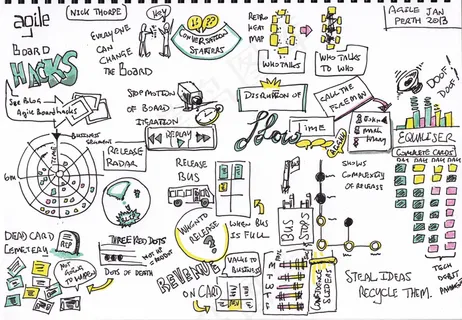 agile
BOARD
HACKS
NICK THORPE
HEY
EVERYONE
CAN
CHANGE
THE BOARD
CONVERSATION
STARTERS
RETRO
HEAT
MAP
WHO TALKS
WHO TALKS
TO WHO
AGILE JAN
PERTH 2013
SEE BLOG
AGILE BOARD HACKS
STOP MOTION
OF BOARD
ITERATION
REPLAY
DISRUPTION OF
FLOW
TIME
CALL THE
FIREMEN
JOHN
MARK
DOOF!
DOOF!
EQUALISER
CONCRETE CARDS
BUSINESS
SEGMENT
TIME
6M
RELEASE
RADAR
RELEASE
BUS
WHEN BUS
IS FULL
WHEN TO
RELEASE
?
BUS
STOPS
SHOWS
COMPLEXITY
OF RELEASE
DEAD CARD
CEMETERY
RIP
NOT
GOING TO
HAPPEN
THREE RED DOTS
DOTS OF DEATH
REVENUE
ON CARD
VALUE TO
BUSINESS
M
T
W
T
F
CONFIDENCE
& IDEAS
STEAL IDEAS
RECYCLE THEM.
TECH
DEBIT